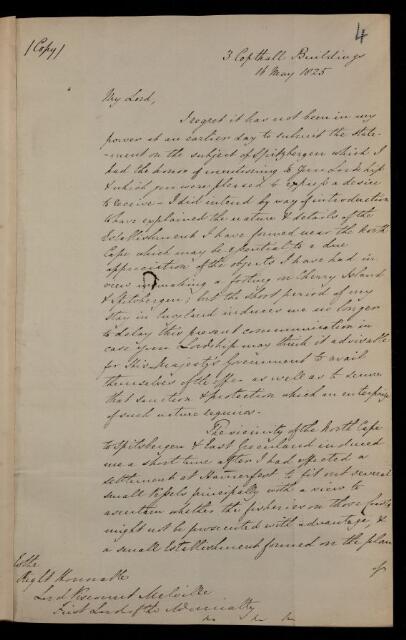 4
/Copy/
3 Copthall Buildings
16 May 1825
My Lord,
I regret it has not been in my
power at an earlier day to submit the state-
-ment on the subject of Spitzbergen which I
had the honor of mentioning to Your Lordship
& which you were pleased to express a desire
to receive - I did intend by way of introduction
to have explained the nature & details of the
Establishment I have formed near the North
Cape which may be essential to a due
appreciation of the objects I have had in
view in making a footing on Cherry Island
& Spitzbergen; but the short period of my
stay in England induces me no longer
to delay this present communication in
case Your Lordship may think it adviseable
for His Majesty's Government to avail
themselves of the offer as well as to secure
that sanction & protection which an enterprize
of such nature requires.
The vicinity of the North Cape
to Spitsbergen & East Greenland induced
me a short time after I had effected a
settlement at Hammerfest to fit out several
small Vessels principally with a view to
ascertain whether the fisheries on those Coasts
might not be prosecuted with advantage, &
a small Establishment formed on the plan
of
To the
Right Honoable
Lord Viscount Melville
First Lord of the Admiralty